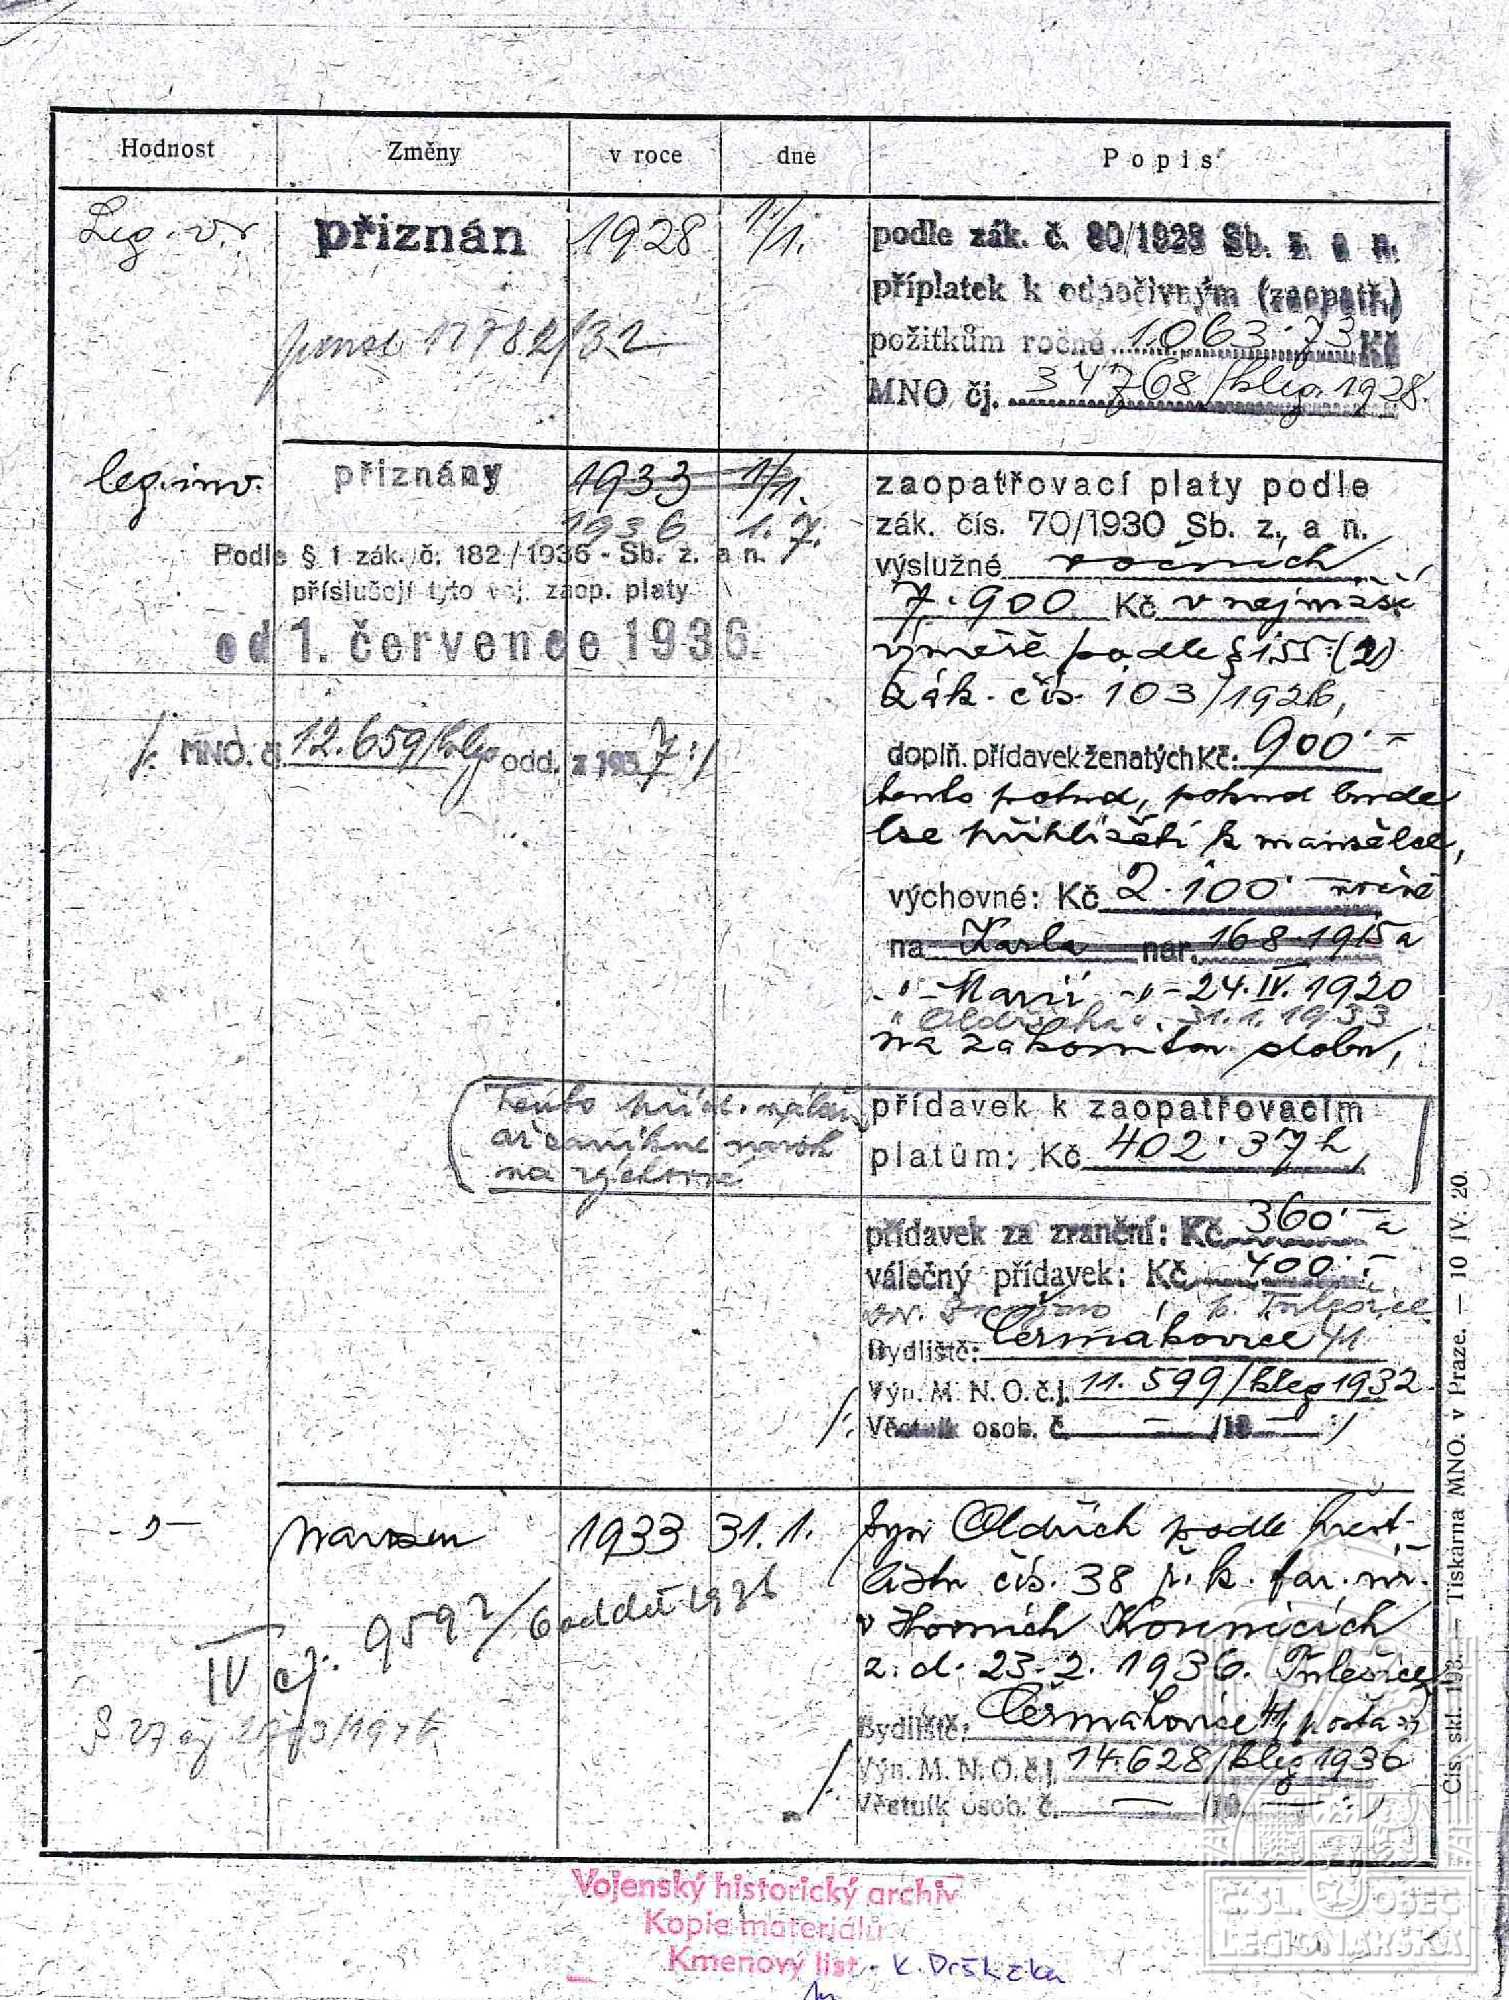 Hodnost Změny v roce dne Popis
Leg. v. přiznán 1928 1/1. podle zák. č. 80/1928 Sb. z. a n.
příplatek k odpočivným (zaopatř.)
11782/32 požitkům ročně 1.063.73 Kč
MNO čj. 34768/kleg. 1928.
leg. inv. přiznány 1933 1/1. zaopatřovací platy podle
1936 1. 7. zák. čís. 70/1930 Sb. z. a n.
Podle § 1 zák. č. 182/1936 - Sb. z. a n. výslužné ročních
příslušejí tyto voj. zaop. platy 7.900 Kč v nejnižší
od 1. července 1936. výměře podle § 155 (2)
zák. čís. 103/1926,
/: MNO. č. 12.659/ odd. z 1937 :/ doplň. přídavek ženatých Kč: 900.-
tento potud, pokud bude
lze přihlížeti k manželce,
výchovné: Kč 2.100.- ročně
na Karla nar. 16 8. 1915 a
" - Marii -"- 24. IV. 1920
" Oldřicha ". 31.1. 1933
na zákonitou dobu,
Tento příd. přídavek k zaopatřovacím
až zanikne nárok platům: Kč 402.37 h,
na výchovné
přídavek za zranění: Kč 360.- a
válečný přídavek: Kč 400.-
p. Tulešice
Bydliště: Čermákovice 41
Výn. M. N. O. č. j. 11.599/kleg 1932
/: Věstník osob. č. — /19 — :/
-"- narozen 1933 31. 1. syn Oldřich podle křest.
listu čís. 38 ř. k. far. úř.
9592/6 odděl 1936 v Horních Kounicích
IV čj. z. d. 23. 2. 1936. Tulešice
Bydliště: Čermákovice 41, pošta
/: Výn. M. N. O. č. j. 14.628/kleg 1936
Věstník osob. č. — /19 — :/
Čís. skl. 193. — Tiskárna MNO. v Praze. — 10 IV. 20.
Vojenský historický archiv
Kopie materiálů
Kmenový list - K. Drškzka
ČSL. OBEC
LEGIONÁŘSKÁ